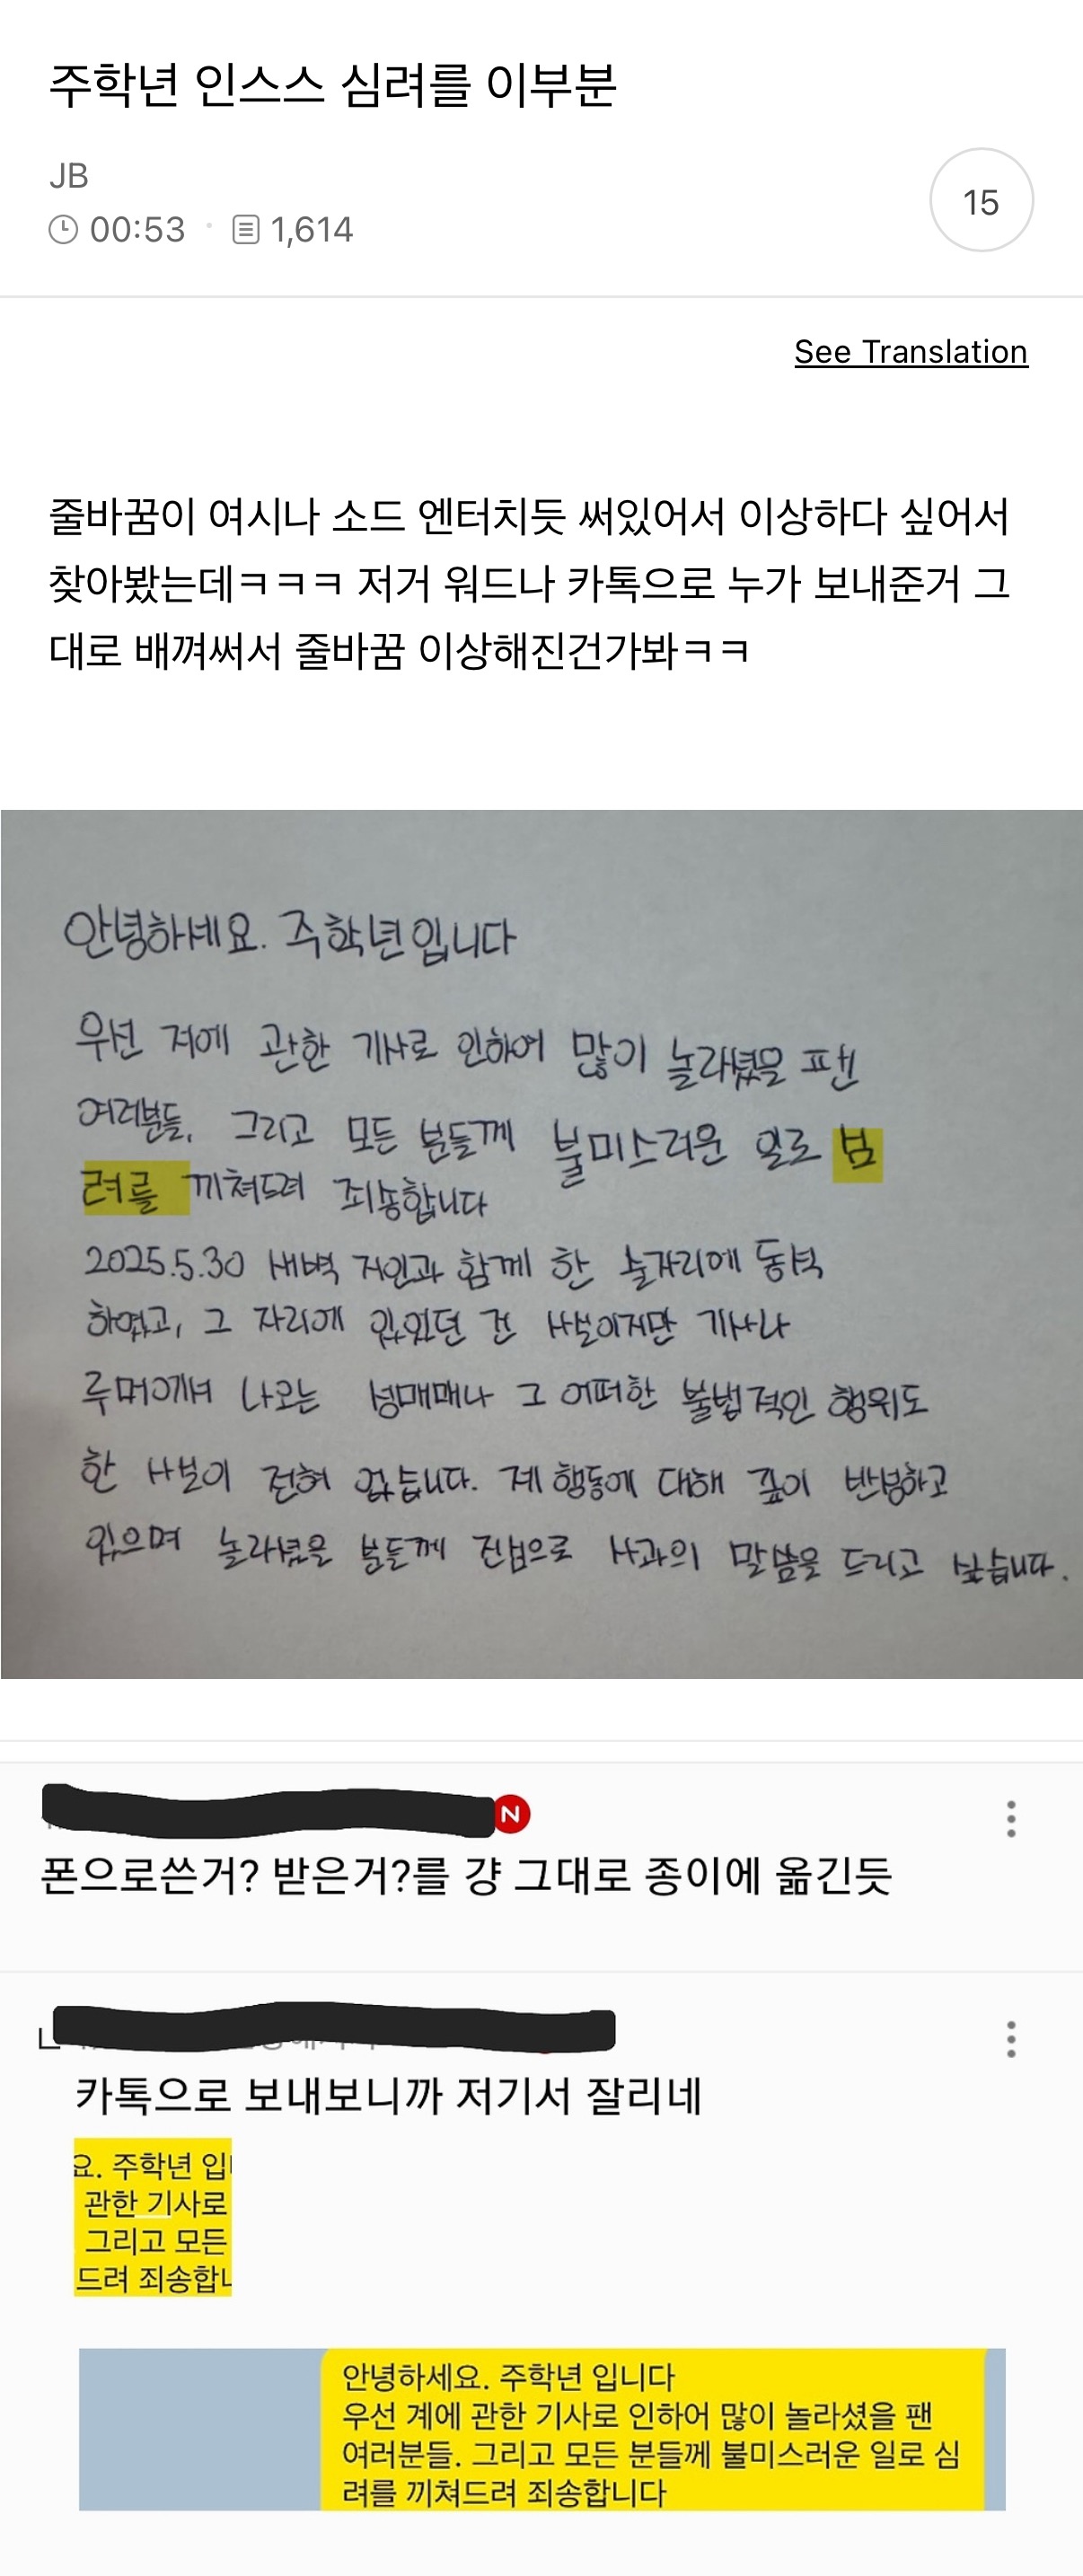 주학년 인스스 심려를 이부분
JB
00:53 · 1,614
15
See Translation
줄바꿈이 여시나 소드 엔터치듯 써있어서 이상하다 싶어서
찾아봤는데ㅋㅋㅋ 저거 워드나 카톡으로 누가 보내준거 그
대로 배껴써서 줄바꿈 이상해진건가봐ㅋㅋ
안녕하세요. 주학년입니다
우선 저에 관한 기사로 인하여 많이 놀라셨을 팬
여러분들, 그리고 모든 분들께 불미스러운 일로 심
려를 끼쳐드려 죄송합니다
2025.5.30 새벽 지인과 함께 한 술자리에 동석
하였고, 그 자리에 있었던 건 사실이지만 기사나
루머에서 나오는 성매매나 그 어떠한 불법적인 행위도
한 사실이 전혀 없습니다. 제 행동에 대해 깊이 반성하고
있으며 놀라셨을 분들께 진심으로 사과의 말씀을 드리고 싶습니다.
N
폰으로쓴거? 받은거?를 걍 그대로 종이에 옮긴듯
ㄴ
카톡으로 보내보니까 저기서 잘리네
요. 주학년 입
관한 기사로
그리고 모든
드려 죄송합
안녕하세요. 주학년 입니다
우선 계에 관한 기사로 인하어 많이 놀라셨을 팬
여러분들. 그리고 모든 분들께 불미스러운 일로 심
려를 끼쳐드려 죄송합니다